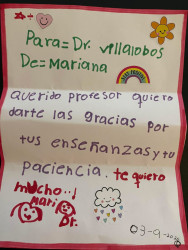 Para= Dr. villalobos
De= Mariana
querido profesor quiero
darte las gracias por
tus enseñanzas y tu
paciencia. te quiero
mucho..!
Mari
Dr.